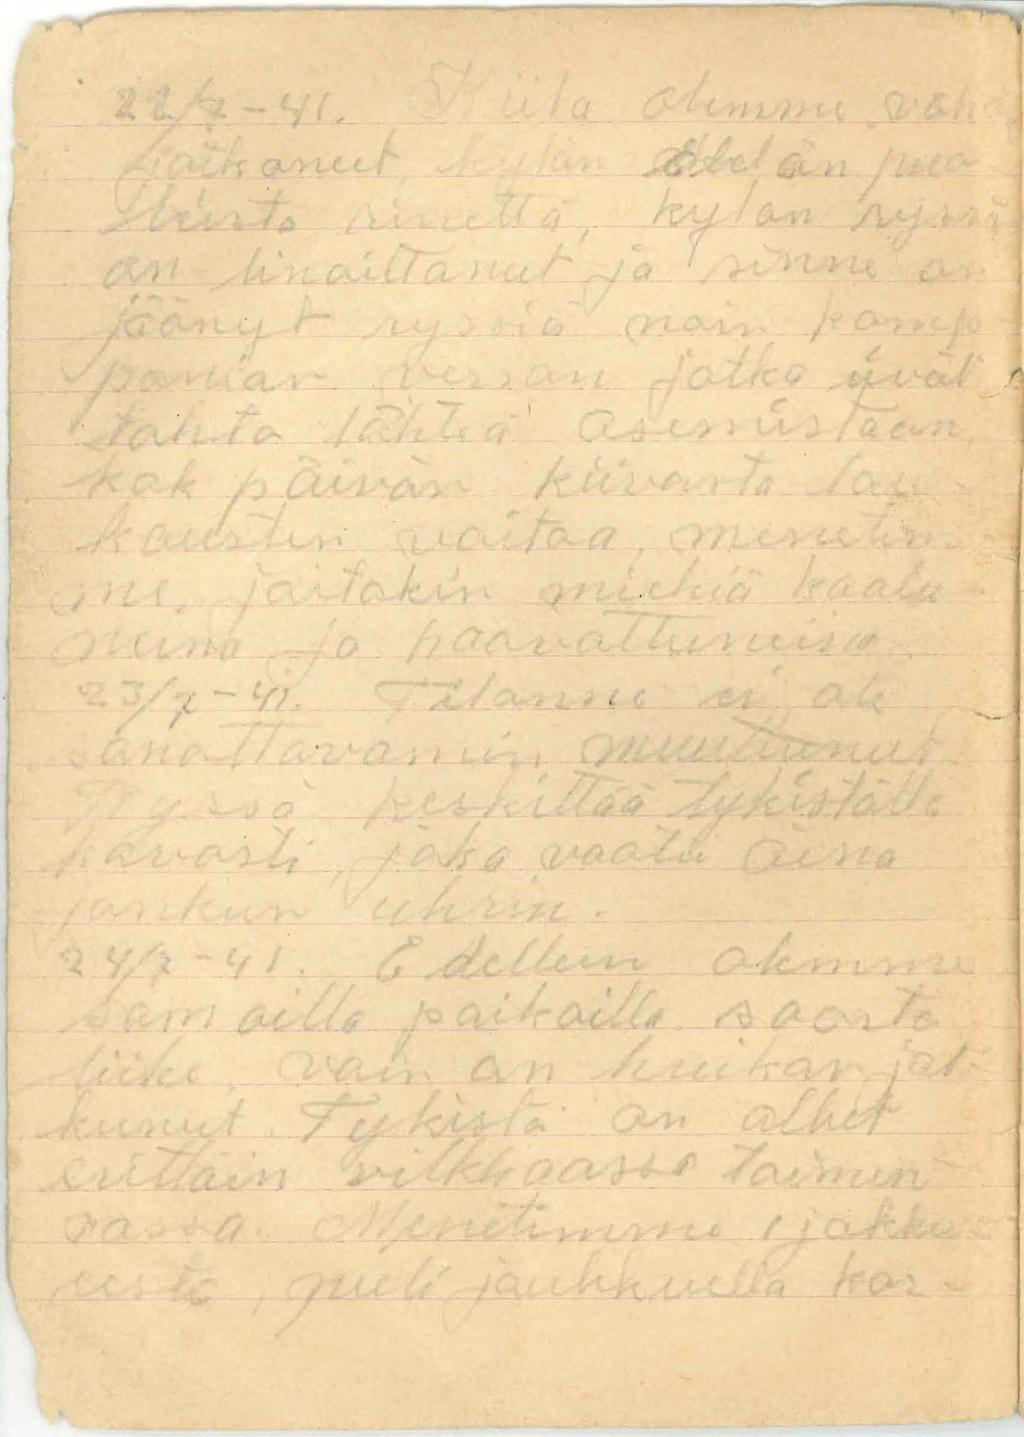 22/7-41. Kiila olemme väh
jatkanut, kylän etelän puo
leista rinettä, kylän ryssä
on linoittanut ja sinne on
jäänyt ryssiä noin komp
panian verran jotka eivät
tahto lähteä asemistaan
kak päivän kiivasta lau-
kausten vaitoa, menetim
me, joitakin miehiä kaatu-
neina ja haavottuneina.
23/7-41. Tilanne ei ole
sanottavamin muuttunut.
Ryssä keskittää tykistöllä
kovasti, joka vaatii aina
jonkun uhrin.
24/7-41. Edelleen olemme
samoilla paikoilla saarto
liike, vain on hiukan jat-
kunut. Tykistö on ollut
erittäin vilkkaassa toimin
nassa. Menetimme
puoli joukkuella kor-